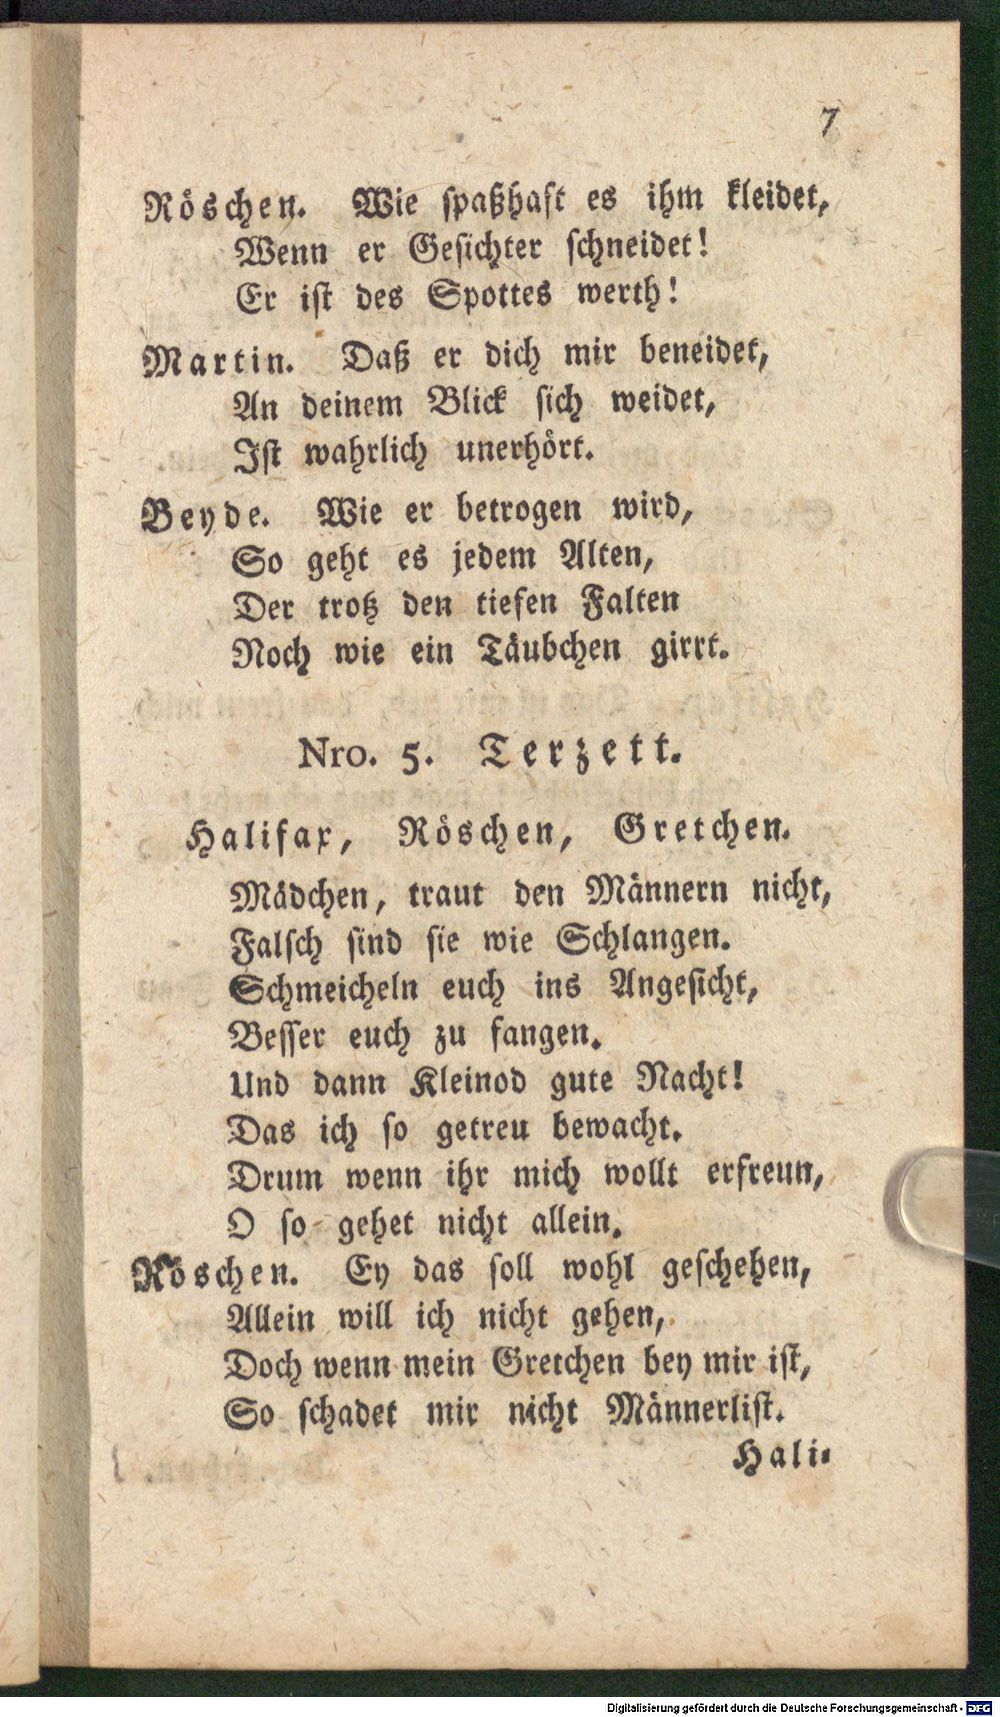 7
Röschen. Wie spaßhaft es ihm kleidet,
Wenn er Gesichter schneidet!
Er ist des Spottes werth!
Martin. Daß er dich mir beneidet,
An deinem Blick sich weidet,
Ist wahrlich unerhört.
Beyde. Wie er betrogen wird,
So geht es jedem Alten,
Der trotz den tiefen Falten
Noch wie ein Täubchen girrt.
Nro. 5. Terzett.
Halifax, Röschen, Gretchen.
Mädchen, traut den Männern nicht,
Falsch sind sie wie Schlangen.
Schmeicheln euch ins Angesicht,
Besser euch zu fangen.
Und dann Kleinod gute Nacht!
Das ich so getreu bewacht.
Drum wenn ihr mich wollt erfreun,
O so gehet nicht allein.
Röschen. Ey das soll wohl geschehen,
Allein will ich nicht gehen,
Doch wenn mein Gretchen bey mir ist,
So schadet mir nicht Männerlist.
Hali-
Digitalisierung gefördert durch die Deutsche Forschungsgemeinschaft - DFG